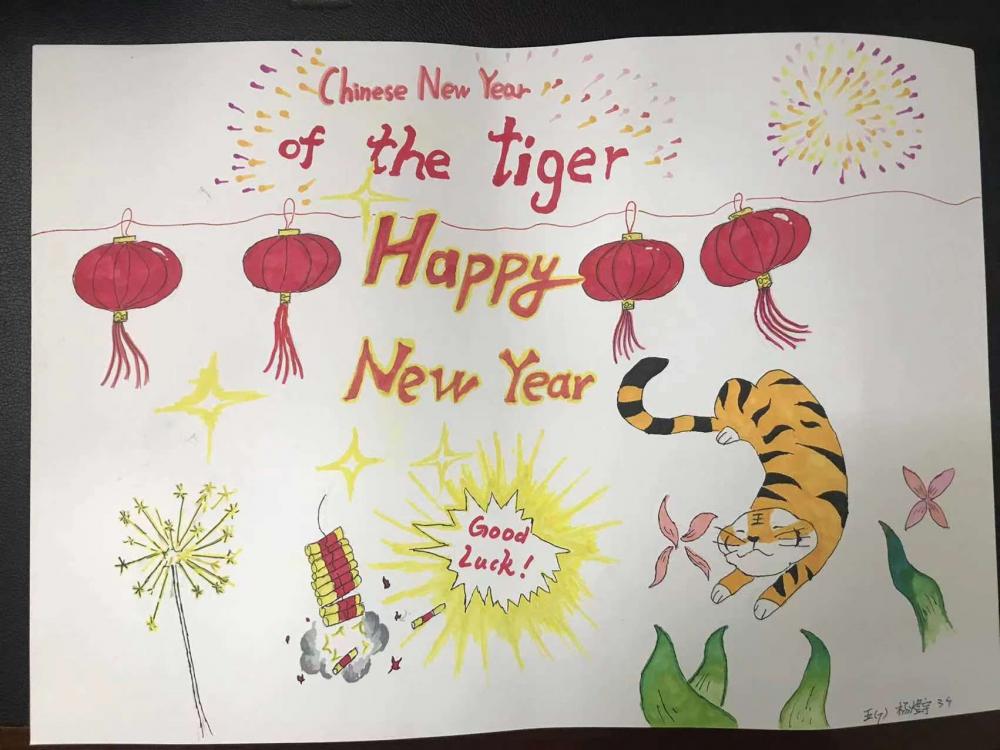 Chinese New Year
of the tiger
Happy
New Year
Good
Luck!
王
五(7) 杨煜宇 34